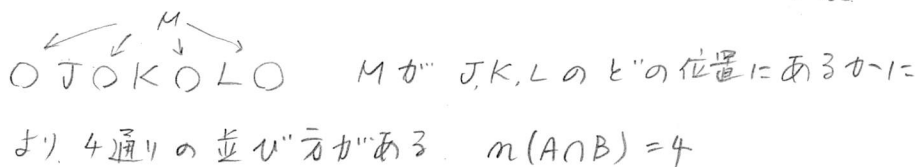 M
○J○K○L○ Mが J,K,Lのどの位置にあるかに
より 4通りの並び方がある n(A∩B)=4